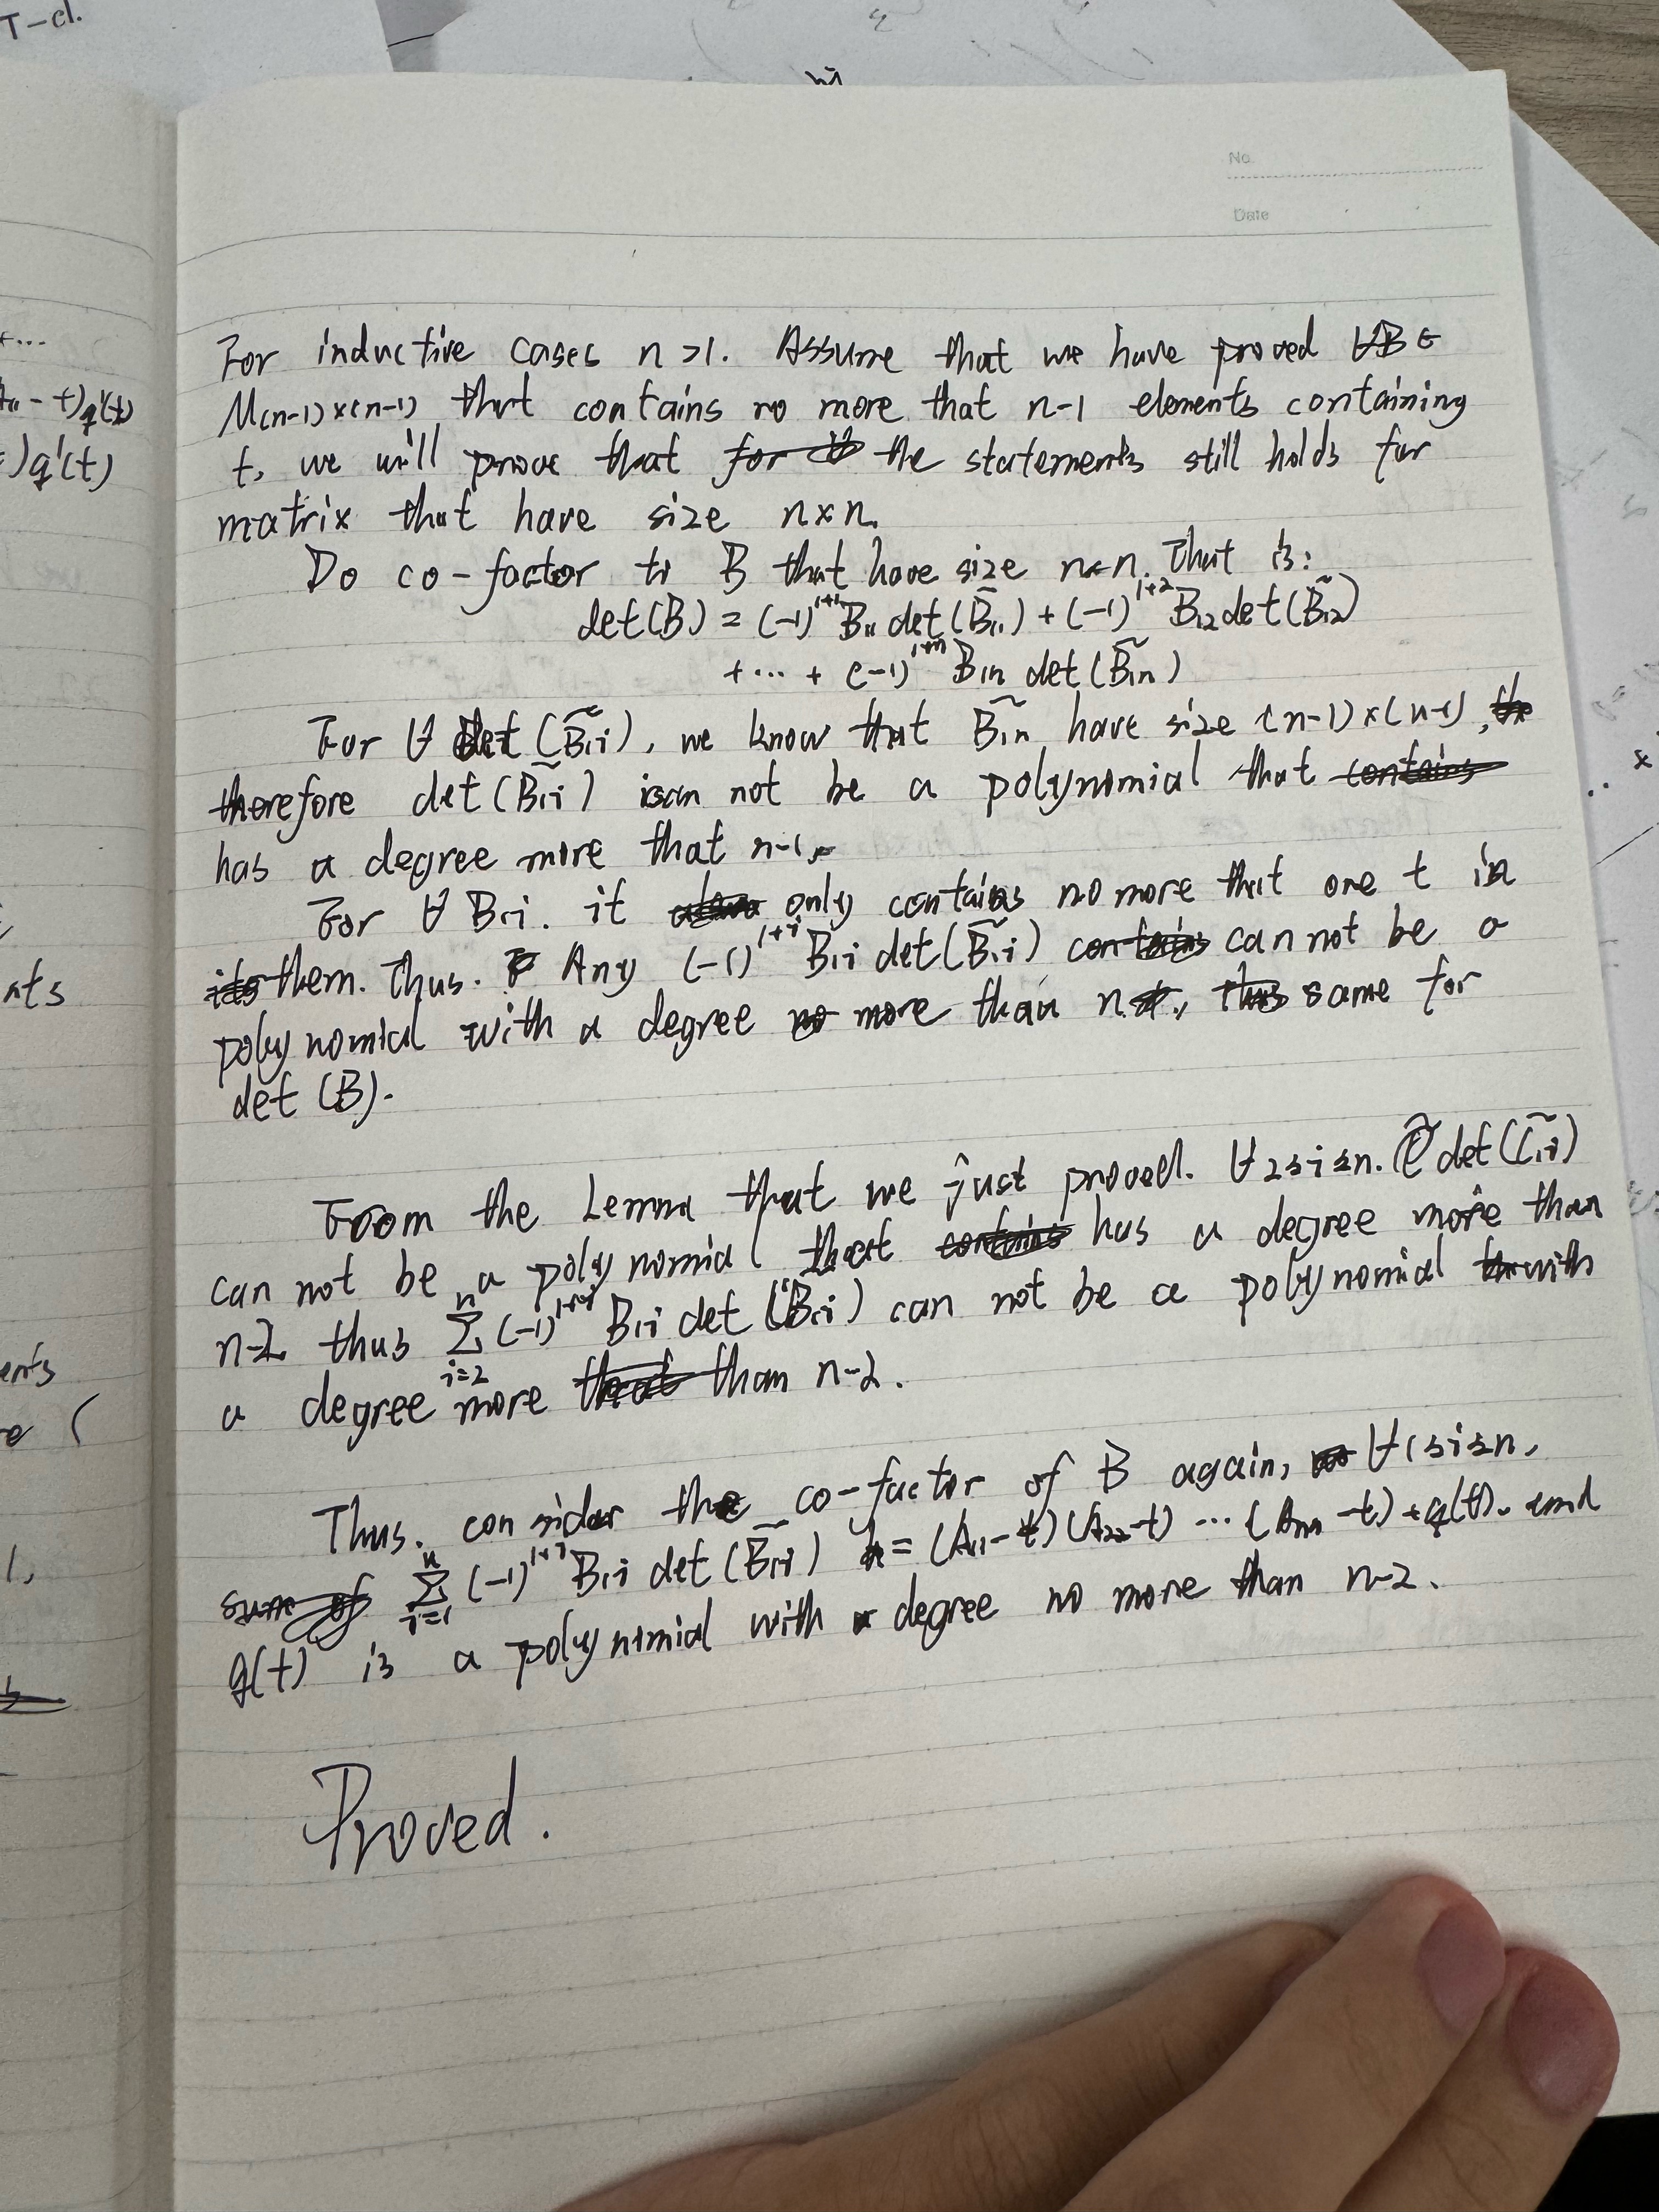 T-cl.
No.
Date
+...
- t)q'(t)
)q'(t)
nts
ents
re (
1,
For inductive cases n>1. Assume that we have proved ∀B∈
M(n-1)×(n-1) that contains no more that n-1 elements containing
t, we will prove that for the statements still holds for
matrix that have size n×n.
Do co-factor to B that have size n×n. That is:
det(B) = (-1)^{1+1} B₁₁ det(B̃₁₁) + (-1)^{1+2} B₁₂ det(B̃₁₂)
+ ... + (-1)^{1+n} B₁ₙ det(B̃₁ₙ)
For ∀ det(B̃₁ᵢ), we know that B̃₁ₙ have size (n-1)×(n-1), the
therefore det(B̃₁ᵢ) can not be a polynomial that contains
has a degree more that n-1.
For ∀ B₁ᵢ. it only contains no more that one t in
its them. Thus. Any (-1)^{1+i} B₁ᵢ det(B̃₁ᵢ) contains can not be a
polynomial with a degree no more than n, thus same for
det (B).
From the Lemma that we just proved. ∀ 2≤i≤n. det(C̃₁ᵢ)
can not be a polynomial that contains has a degree more than
n-2 thus ∑_{i=2}^{n} (-1)^{1+i} B₁ᵢ det(B̃₁ᵢ) can not be a polynomial with
a degree more that than n-2.
Thus. consider the co-factor of B again, ∀ 1≤i≤n,
sum of ∑_{i=1}^{n} (-1)^{1+i} B₁ᵢ det(B̃₁ᵢ) = (A₁₁-t)(A₂₂-t) ... (Aₙₙ-t)+q(t). and
q(t) is a polynimial with a degree no more than n-2.
Proved.